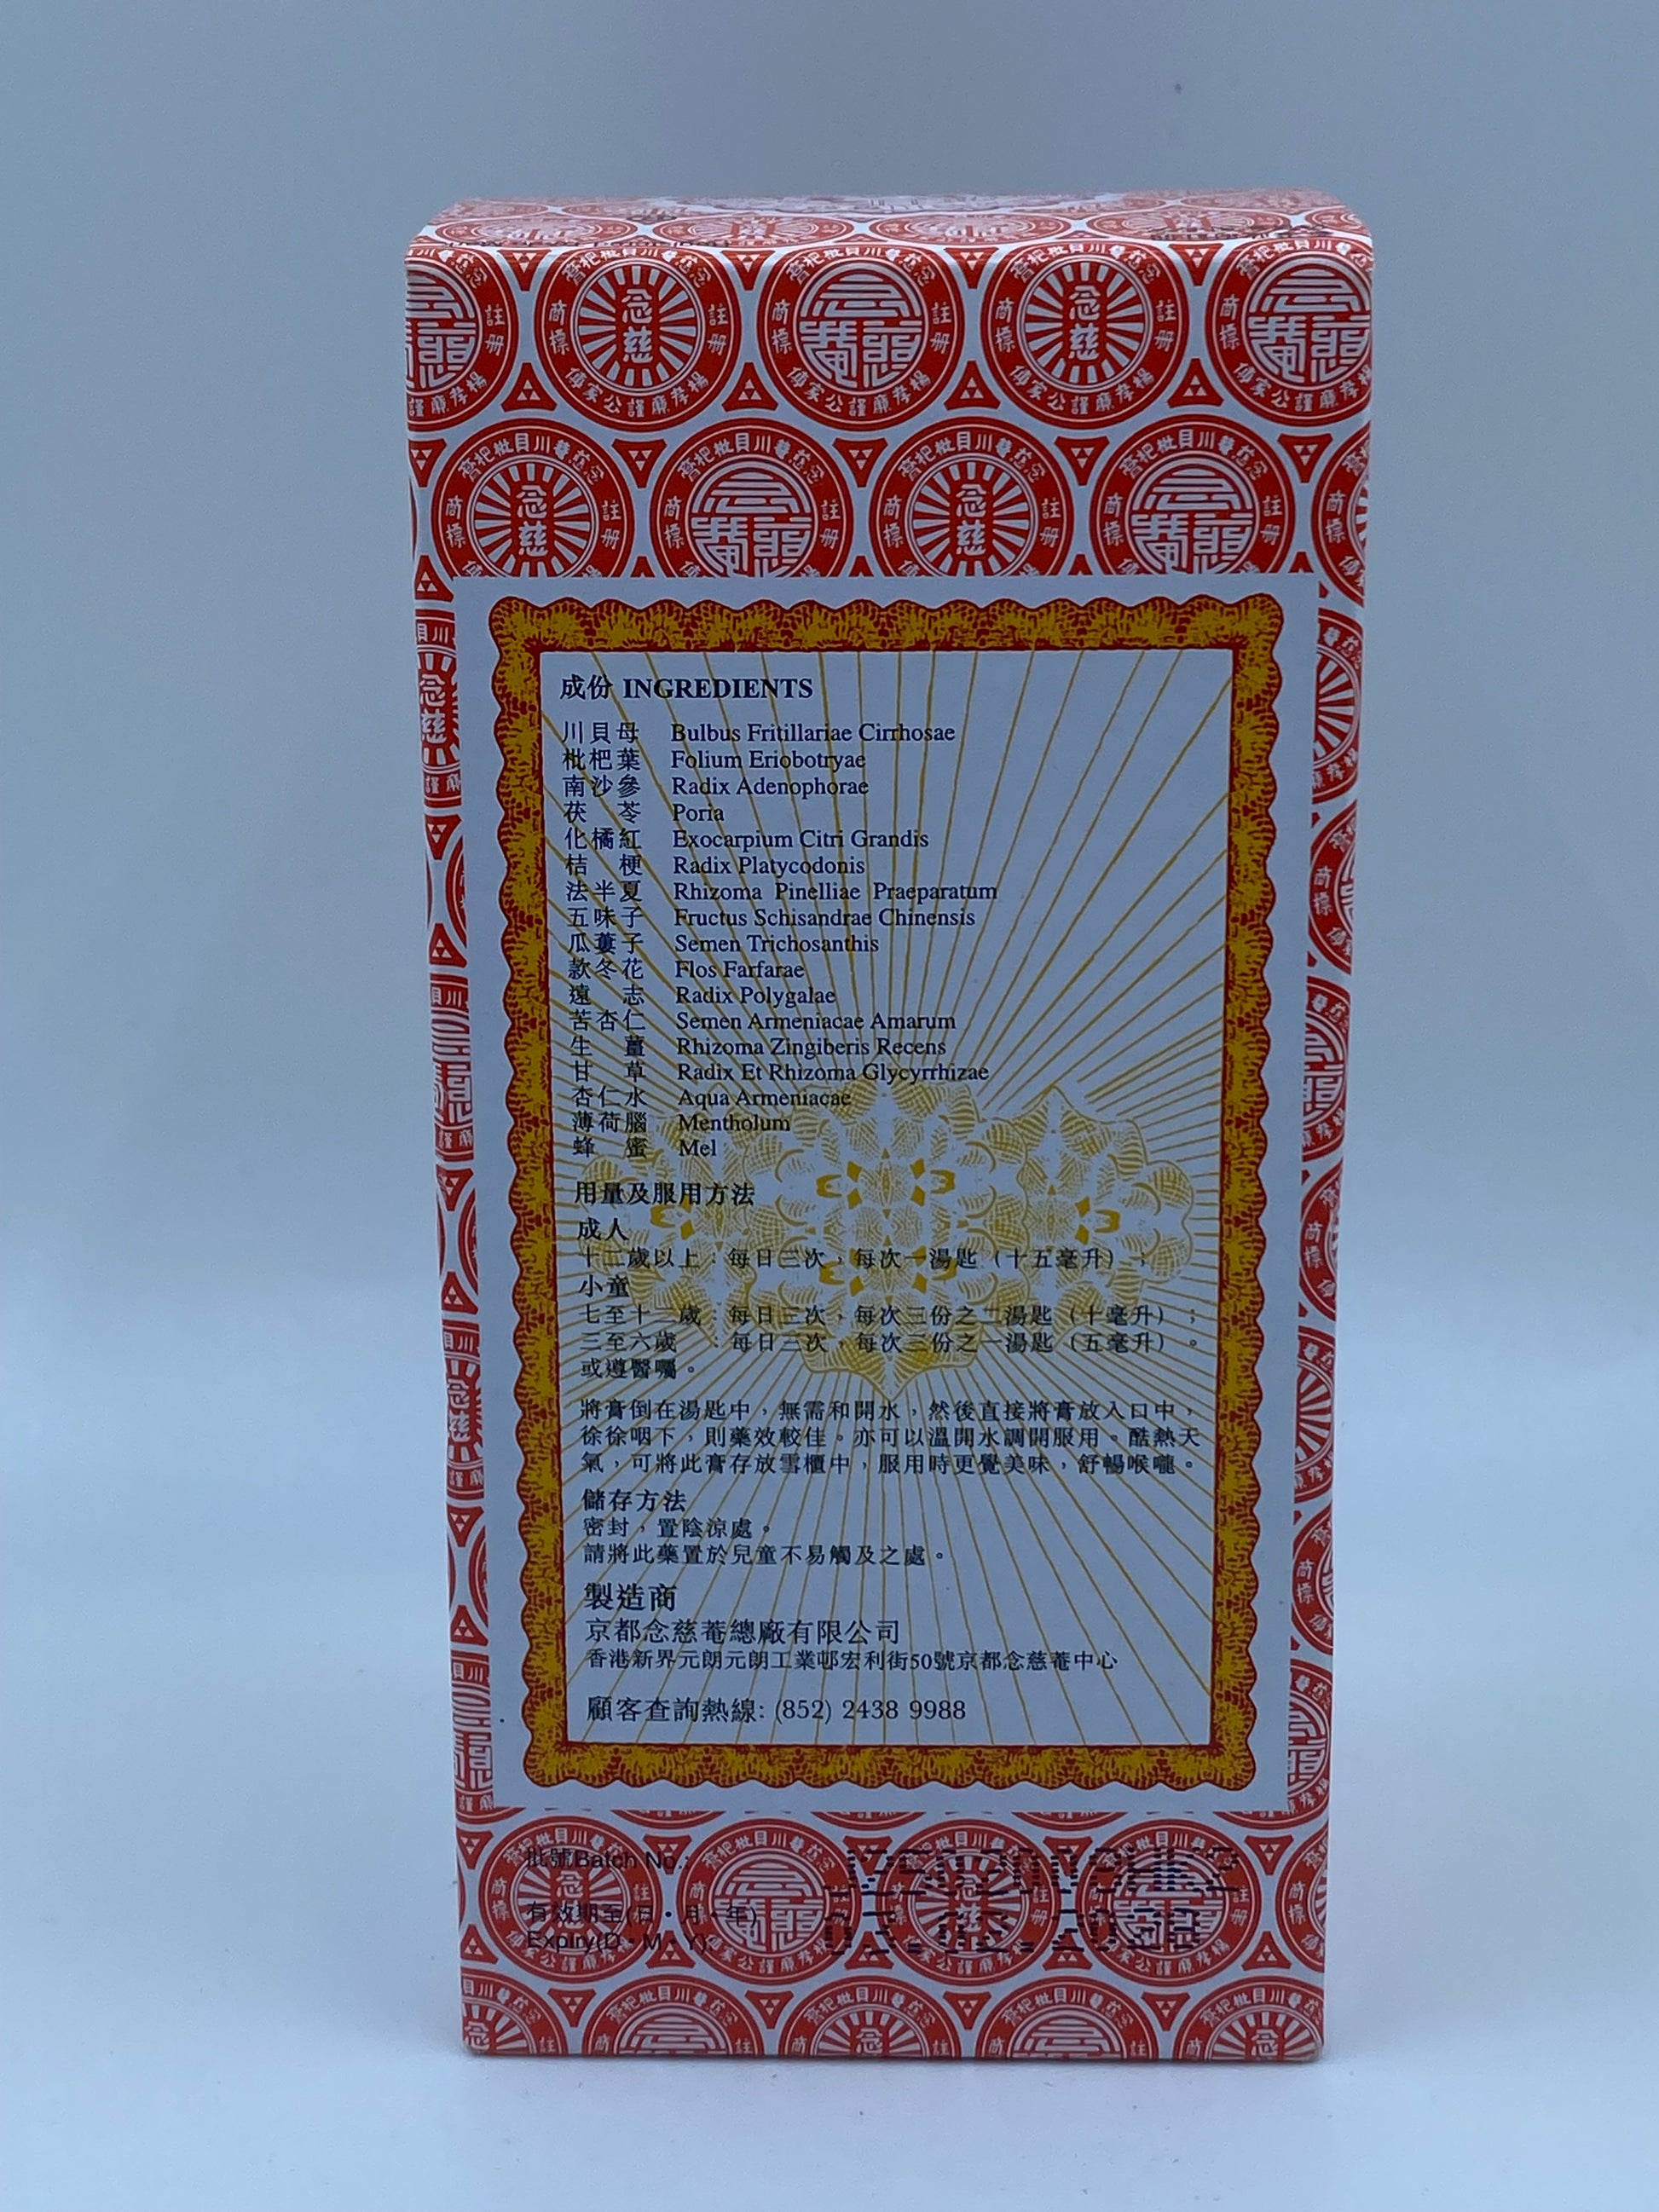 念慈
註冊
商標
成份 INGREDIENTS
川貝母 Bulbus Fritillariae Cirrhosae
枇杷葉 Folium Eriobotryae
南沙參 Radix Adenophorae
茯苓 Poria
化橘紅 Exocarpium Citri Grandis
桔梗 Radix Platycodonis
法半夏 Rhizoma Pinelliae Praeparatum
五味子 Fructus Schisandrae Chinensis
瓜蔞子 Semen Trichosanthis
款冬花 Flos Farfarae
遠志 Radix Polygalae
苦杏仁 Semen Armeniacae Amarum
生薑 Rhizoma Zingiberis Recens
甘草 Radix Et Rhizoma Glycyrrhizae
杏仁水 Aqua Armeniacae
薄荷腦 Mentholum
蜂蜜 Mel
用量及服用方法
成人
十二歲以上：每日三次，每次一湯匙（十五毫升）；
小童
七至十二歲：每日三次，每次三份之二湯匙（十毫升）；
三至六歲：每日三次，每次三份之一湯匙（五毫升）。
或遵醫囑。
將膏倒在湯匙中，無需和開水，然後直接將膏放入口中，
徐徐咽下，則藥效較佳。亦可以溫開水調開服用。酷熱天
氣，可將此膏存放雪櫃中，服用時更覺美味，舒暢喉嚨。
儲存方法
密封，置陰涼處。
請將此藥置於兒童不易觸及之處。
製造商
京都念慈菴總廠有限公司
香港新界元朗元朗工業邨宏利街50號京都念慈菴中心
顧客查詢熱線: (852) 2438 9988
批號Batch No.:
有效期至(日・月・年)
Expiry(D・M・Y): 03.02.2028